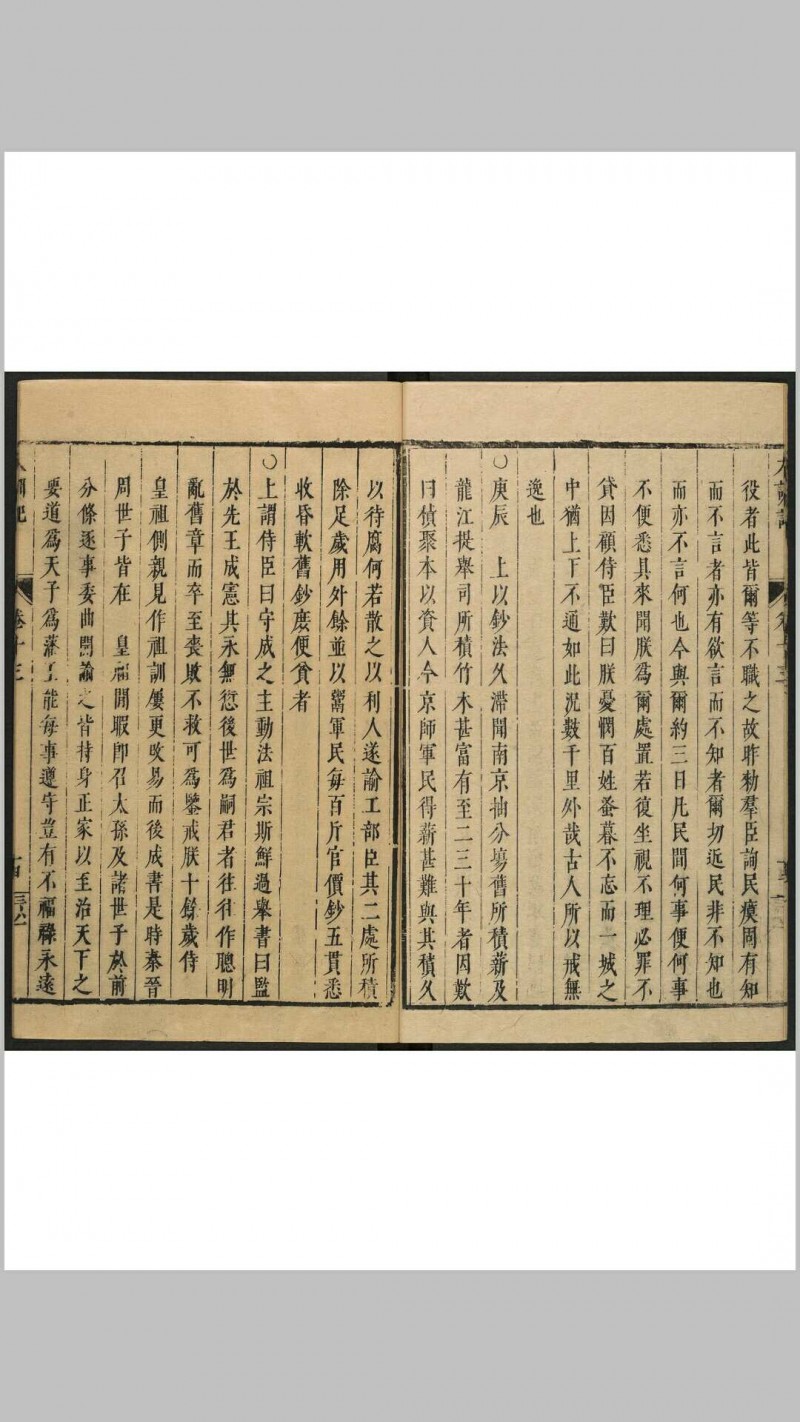 役者此皆爾等不職之故昨勑羣臣詢民瘼固有知
而不言者亦有欲言而不知者爾切近民非不知也
而亦不言何也今與爾約三日凡民間何事便何事
不便悉具來聞朕爲爾處置若復坐視不理必罪不
貸因顧侍臣歎曰朕憂憫百姓蚤暮不忘而一城之
中猶上下不通如此況數千里外哉古人所以戒無
逸也
○庚辰 上以鈔法久滯聞南京抽分塲舊所積薪及
龍江提舉司所積竹木甚富有至二三十年者因歎
曰積聚本以資人今京師軍民得薪甚難與其積久
以待腐何若散之以利人遂諭工部臣其二處所積
除足歲用外餘並以鬻軍民每百斤官價鈔五貫悉
收昏軟舊鈔庶便貧者
○上謂侍臣曰守成之主動法祖宗斯鮮過舉書曰監
於先王成憲其永無愆後世爲嗣君者往往作聰明
亂舊章而卒至喪敗不救可爲鑒戒朕十餘歲侍
皇祖側親見作祖訓屢更改易而後成書是時秦晉
周世子皆在 皇祖閒暇卽召太孫及諸世子於前
分條逐事委曲開諭之皆持身正家以至治天下之
要道爲天子爲藩王能每事遵守豈有不福祿永遠
卷十三